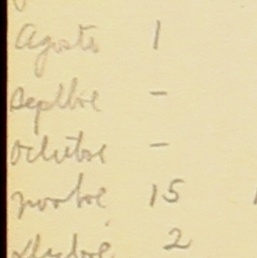 Agosto 1
Sepbbre -
Octubre -
novbre 15
dicbre 2